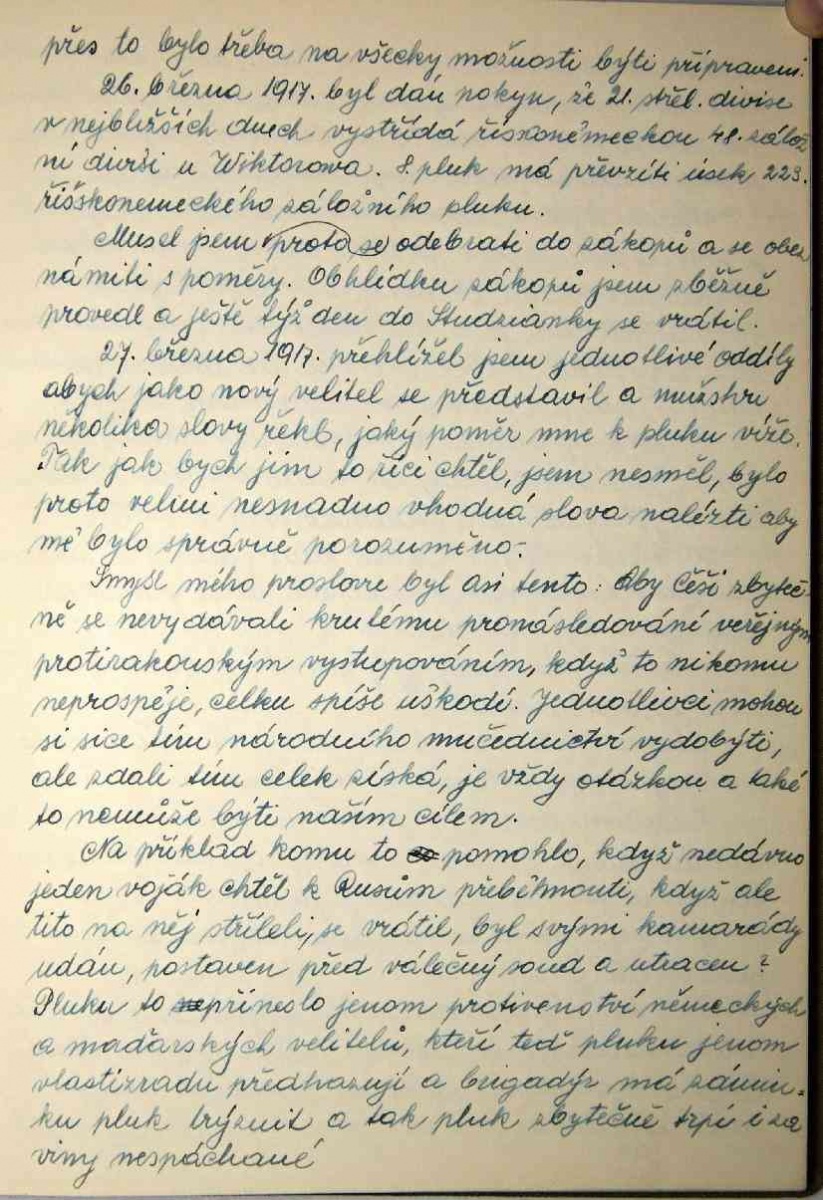 přes to bylo třeba na všecky možnosti býti připraveni.
26. března 1917. byl dán pokyn, že 21. střel. divise
v nejbližších dnech vystřídá říšskoněmeckou 48. zálož
ní divisi u Wiktorowa. 8. pluk má převzíti úsek 223.
říšskonemeckého záložního pluku.
Musel jsem proto se odebrati do zákopů a se obez
námiti s poměry. Obhlídku zákopů jsem zběžně
provedl a ještě týž den do Studzianky se vrátil.
27. března 1917. přehlížel jsem jednotlivé oddíly
abych jako nový velitel se představil a mužstvu
několika slovy řekl, jaký poměr mne k pluku víže.
Tak jak bych jim to říci chtěl, jsem nesměl, bylo
proto velmi nesnadno vhodná slova nalézti aby
mě bylo správně porozuměno.
Smysl mého proslovu byl asi tento: Aby Češi zbyteč
ně se nevydávali krutému pronásledování veřejným
protirakouským vystupováním, když to nikomu
neprospěje, celku spíše uškodí. Jednotlivci mohou
si sice tím národního mučednictví vydobýti,
ale zdali tím celek získá, je vždy otázkou a také
to nemůže býti naším cílem.
Na příklad komu to pomohlo, když nedávno
jeden voják chtěl k Rusům přeběhnouti, když ale
tito na něj stříleli, se vrátil, byl svými kamarády
udán, postaven před válečný soud a utracen?
Pluku to přineslo jenom protivenství německých
a maďarských velitelů, kteří teď pluku jenom
vlastizradu předhazují a brigadýr má zámin-
ku pluk trýznit a tak pluk zbytečně trpí i za
viny nespáchané